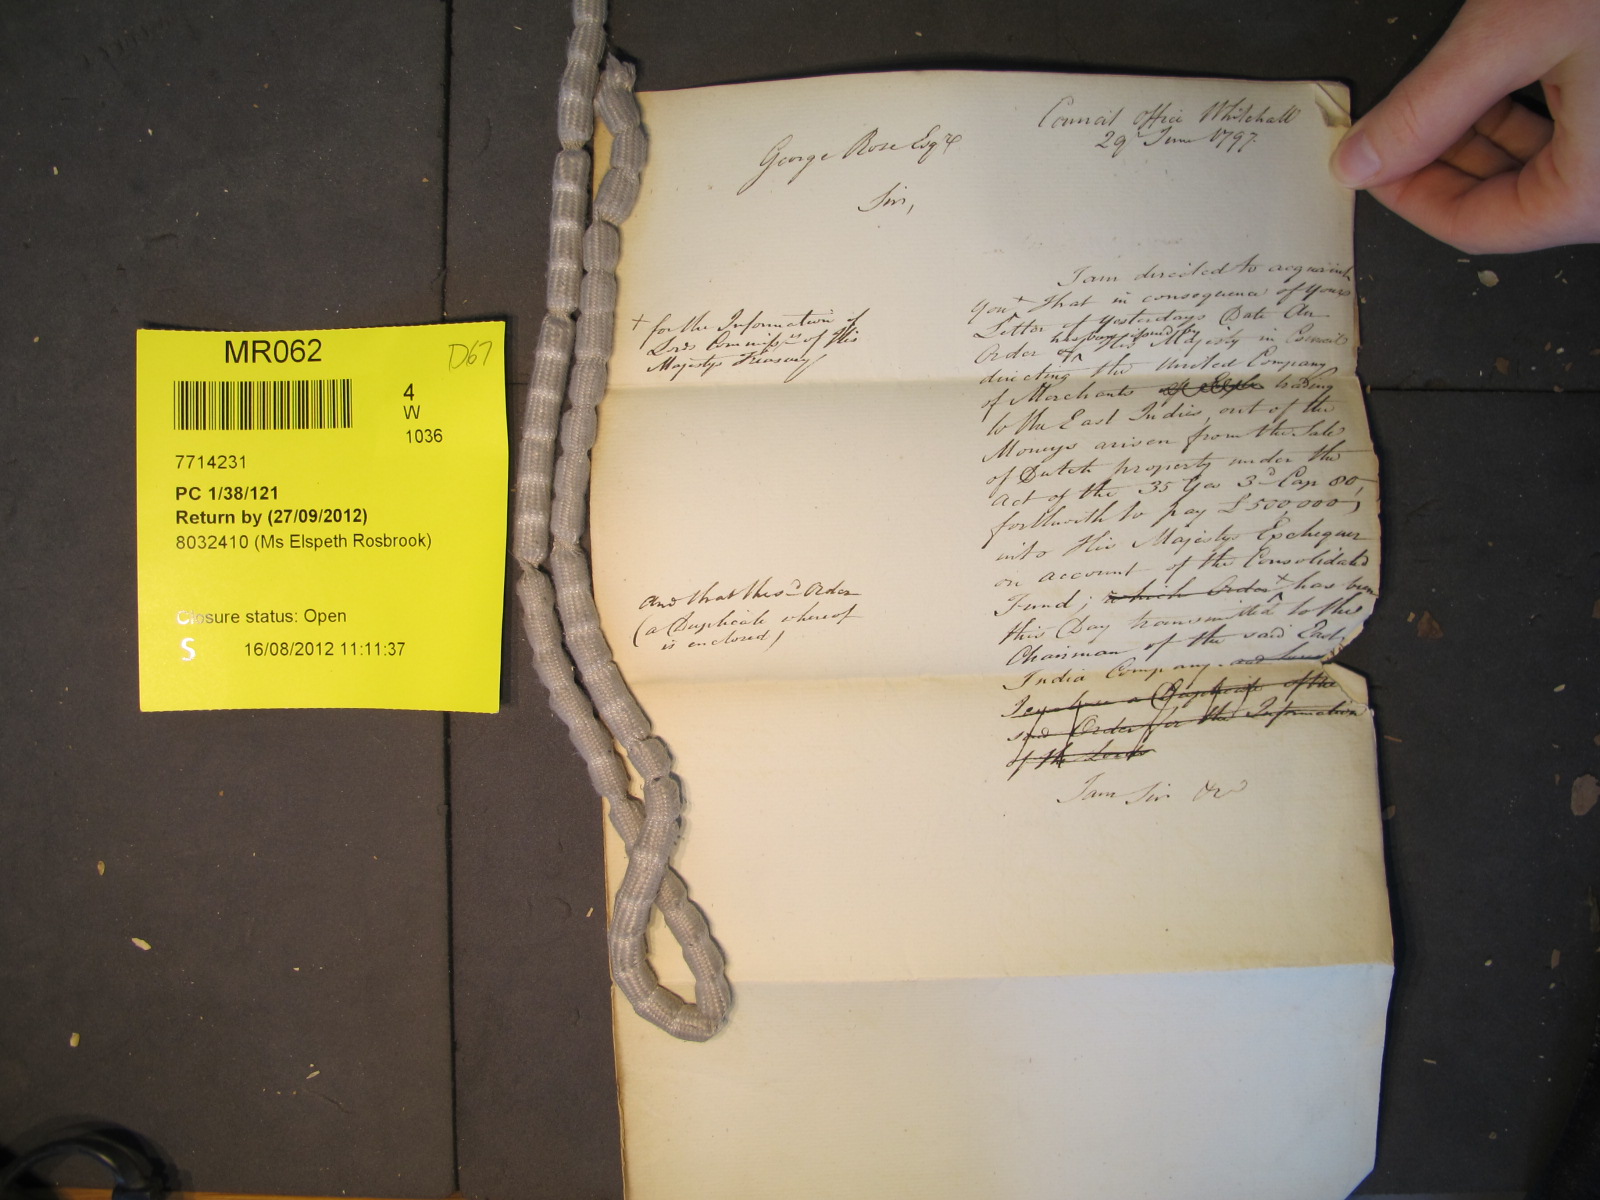 MR062
D67
4
W
1036
7714231
PC 1/38/121
Return by (27/09/2012)
8032410 (Ms Elspeth Rosbrook)
Closure status: Open
S
16/08/2012 11:11:37
Council Office Whitehall
29 June 1797.
George Rose Esqre
Sir,
I am directed to acquaint
You + that in consequence of Your
Letter of Yesterdays Date An
has been issued by
Order of His Majesty in Council
directing the United Company
of Merchants trading
to the East Indies, out of the
Moneys arisen from the Sale
of Dutch property under the
Act of the 35 Geo 3d Cap 80,
forthwith to pay £500000,
into His Majestys Exchequer
on account of the Consolidated
Fund; which Order x has been
this Day transmitted to the
Chairman of the said East
India Company. and
I enclose a Duplicate of the
said Order for the Information
of the Lords
I am Sir &c
+ for the Information of
Lords Commissrs of His
Majestys Treasury
and that the sd Order
(a Duplicate whereof
is enclosed)